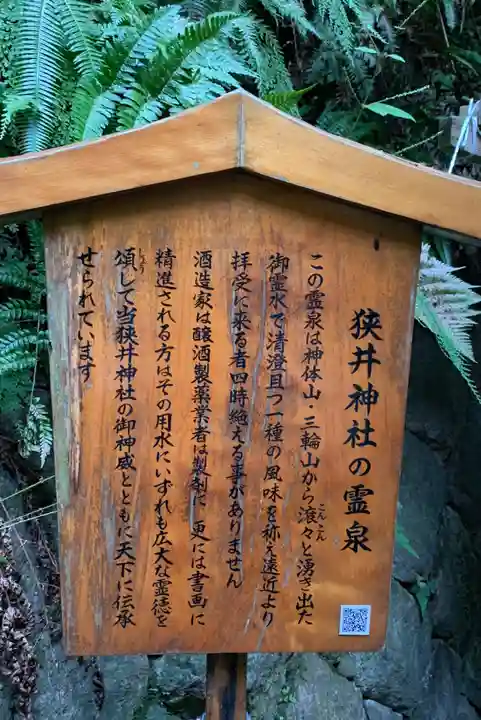 狭井神社の霊泉
この霊泉は神体山・三輪山から滾々と湧き出た
こんこん
御霊水で清澄且つ一種の風味を称え遠近より
拝受に来る者四時絶える事がありません
酒造家は醸酒製薬業者は製剤に 更には書画に
精進される方はその用水にいずれも広大な霊徳を
頌して当狭井神社の御神威とともに天下に伝承
しょう
せられています